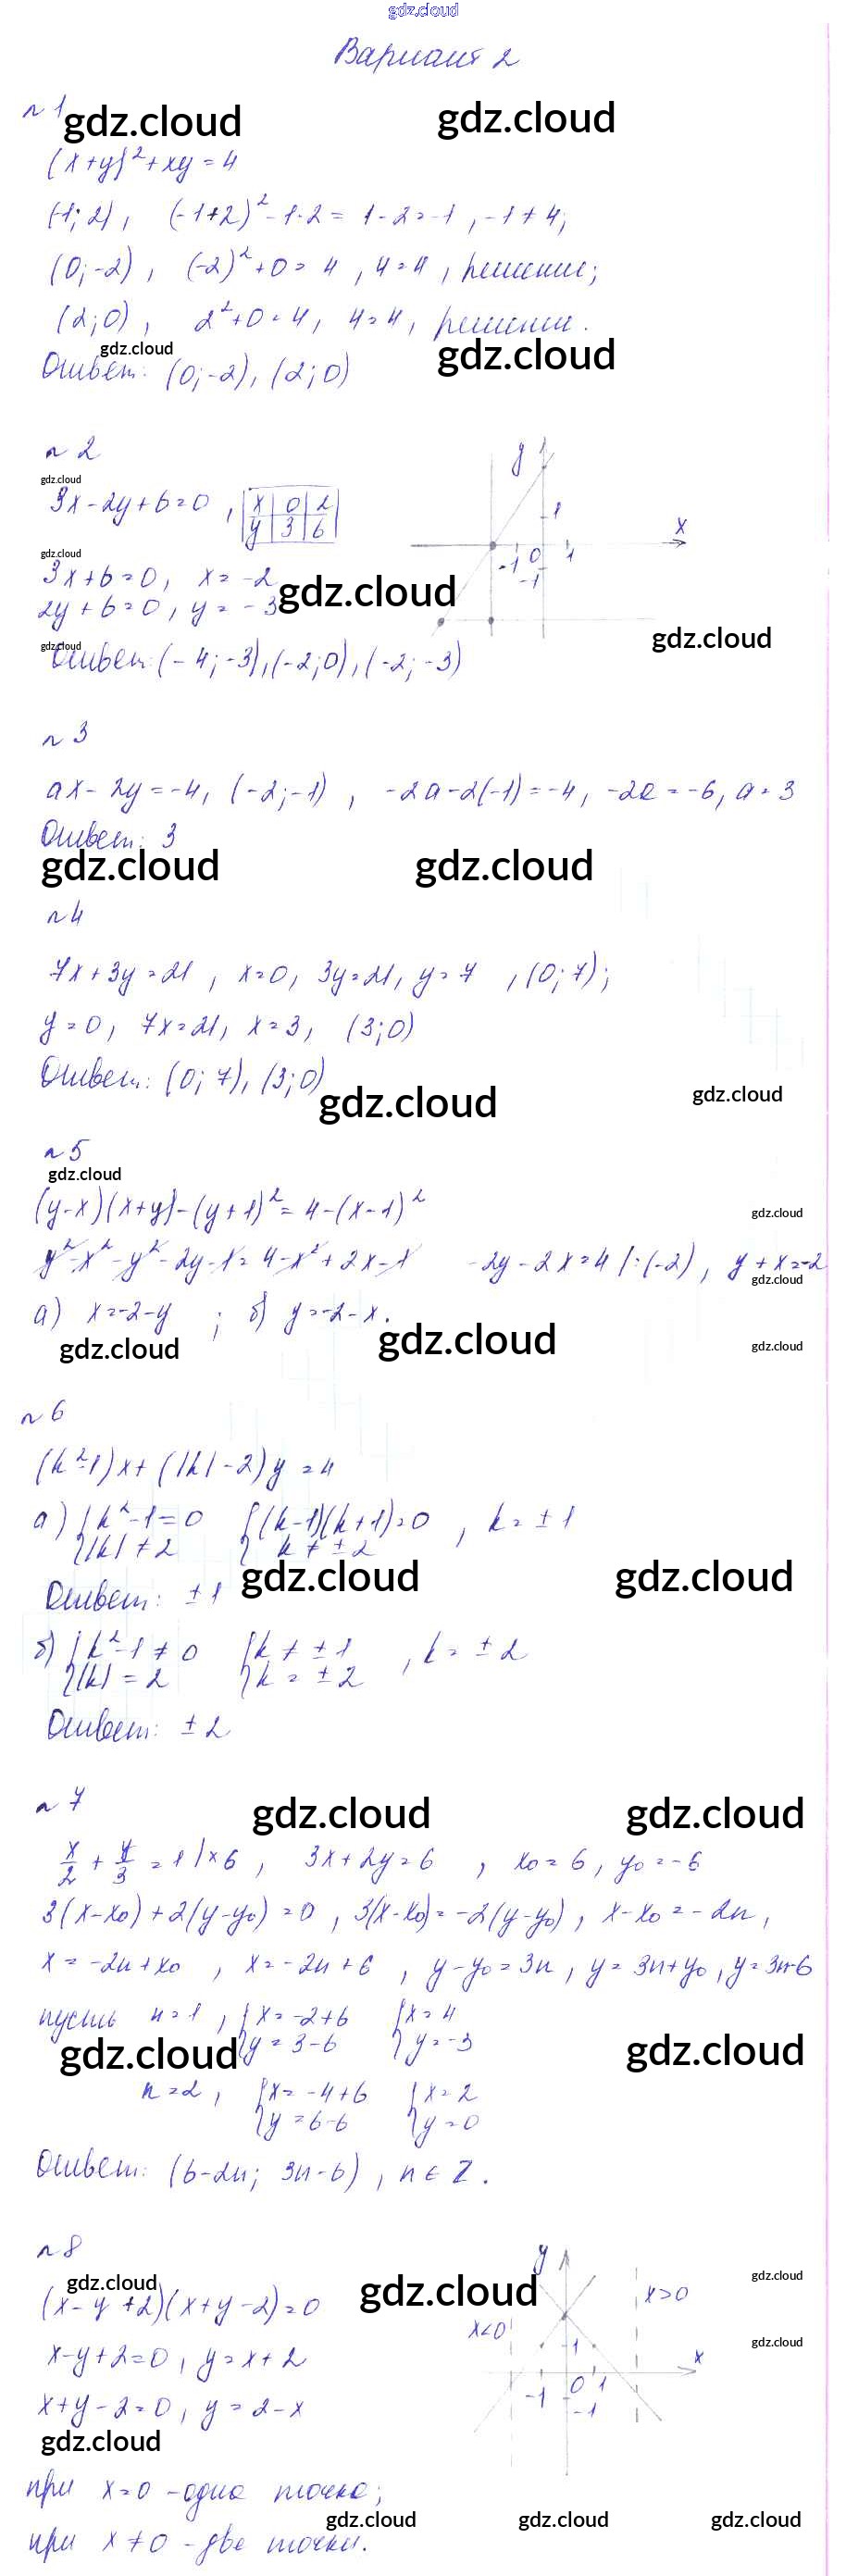 gdz.cloud
Вариант 2
n 1
gdz.cloud gdz.cloud
(x+y)² + xy = 4
(-1; 2), (-1+2)² - 1·2 = 1 - 2 = -1, -1 ≠ 4;
(0; -2), (-2)² + 0 = 4, 4 = 4, решение;
(2; 0), 2² + 0 = 4, 4 = 4, решение.
gdz.cloud gdz.cloud
Ответ: (0; -2), (2; 0)
n 2
gdz.cloud
3x - 2y + 6 = 0, x 0 2
y 3 6
y 1 x -1 0 1 -1
gdz.cloud
3x + 6 = 0, x = -2
gdz.cloud
2y + 6 = 0, y = -3
gdz.cloud
gdz.cloud
Ответ: (-4; -3), (-2; 0), (-2; -3)
n 3
ax - 2y = -4, (-2; -1), -2a - 2(-1) = -4, -2a = -6, a = 3
Ответ: 3
gdz.cloud gdz.cloud
n 4
7x + 3y = 21, x = 0, 3y = 21, y = 7, (0; 7);
y = 0, 7x = 21, x = 3, (3; 0)
Ответ: (0; 7), (3; 0)
gdz.cloud gdz.cloud
n 5
gdz.cloud
(y-x)(x+y) - (y+1)² = 4 - (x-1)²
gdz.cloud
y² - x² - y² - 2y - 1 = 4 - x² + 2x - 1 -2y - 2x = 4 |:(-2), y + x = -2
gdz.cloud
а) x = -2 - y; б) y = -2 - x.
gdz.cloud gdz.cloud gdz.cloud
n 6
(k²-1)x + (|k| - 2)y = 4
а) { k² - 1 = 0 { (k-1)(k+1) = 0, k = ± 1
|k| ≠ 2 k ≠ ± 2
gdz.cloud gdz.cloud
Ответ: ± 1
б) { k² - 1 ≠ 0 { k ≠ ± 1, k = ± 2
|k| = 2 k = ± 2
Ответ: ± 2
n 7
gdz.cloud gdz.cloud
x/2 + y/3 = 1 | × 6, 3x + 2y = 6, x₀ = 6, y₀ = -6
3(x-x₀) + 2(y-y₀) = 0, 3(x-x₀) = -2(y-y₀), x-x₀ = -2n,
x = -2n + x₀, x = -2n + 6, y - y₀ = 3n, y = 3n + y₀, y = 3n-6
пусть n = 1, { x = -2+6 { x = 4
y = 3-6 y = -3
gdz.cloud gdz.cloud
n = 2, { x = -4+6 { x = 2
y = 6-6 y = 0
Ответ: (6-2n; 3n-6), n ∈ Z.
n 8
gdz.cloud gdz.cloud gdz.cloud
(x - y + 2)(x + y - 2) = 0
y x>0 x<0 1 x 0 1 -1 -1
gdz.cloud
x - y + 2 = 0, y = x + 2
x + y - 2 = 0, y = 2 - x
gdz.cloud
при x = 0 - одна точка;
gdz.cloud gdz.cloud gdz.cloud
при x ≠ 0 - две точки.